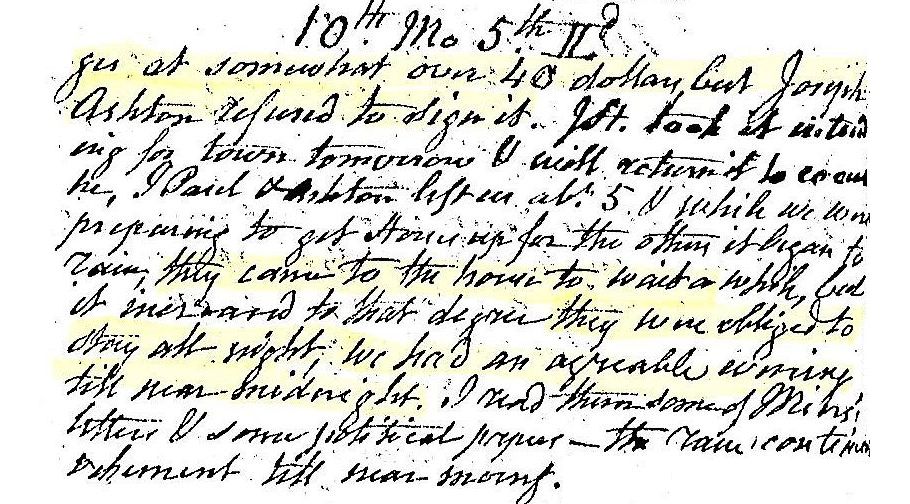 10th Mo 5th II d
ges at somewhat over 40 dollars, but Joseph
Ashton refused to sign it. Jst. took it intend
ing for town tomorrow & will return it to
he, J Paul & Ashton left us abt. 5 & while we were
preparing to get Horses up for the others it began to
rain, they came to the house to wait a while, but
it increased to that degree they were obliged to
stay all night, we had an agreable evening
till near midnight. I read them some of
letters & some political papers — the rain continu
vehement till near morng.